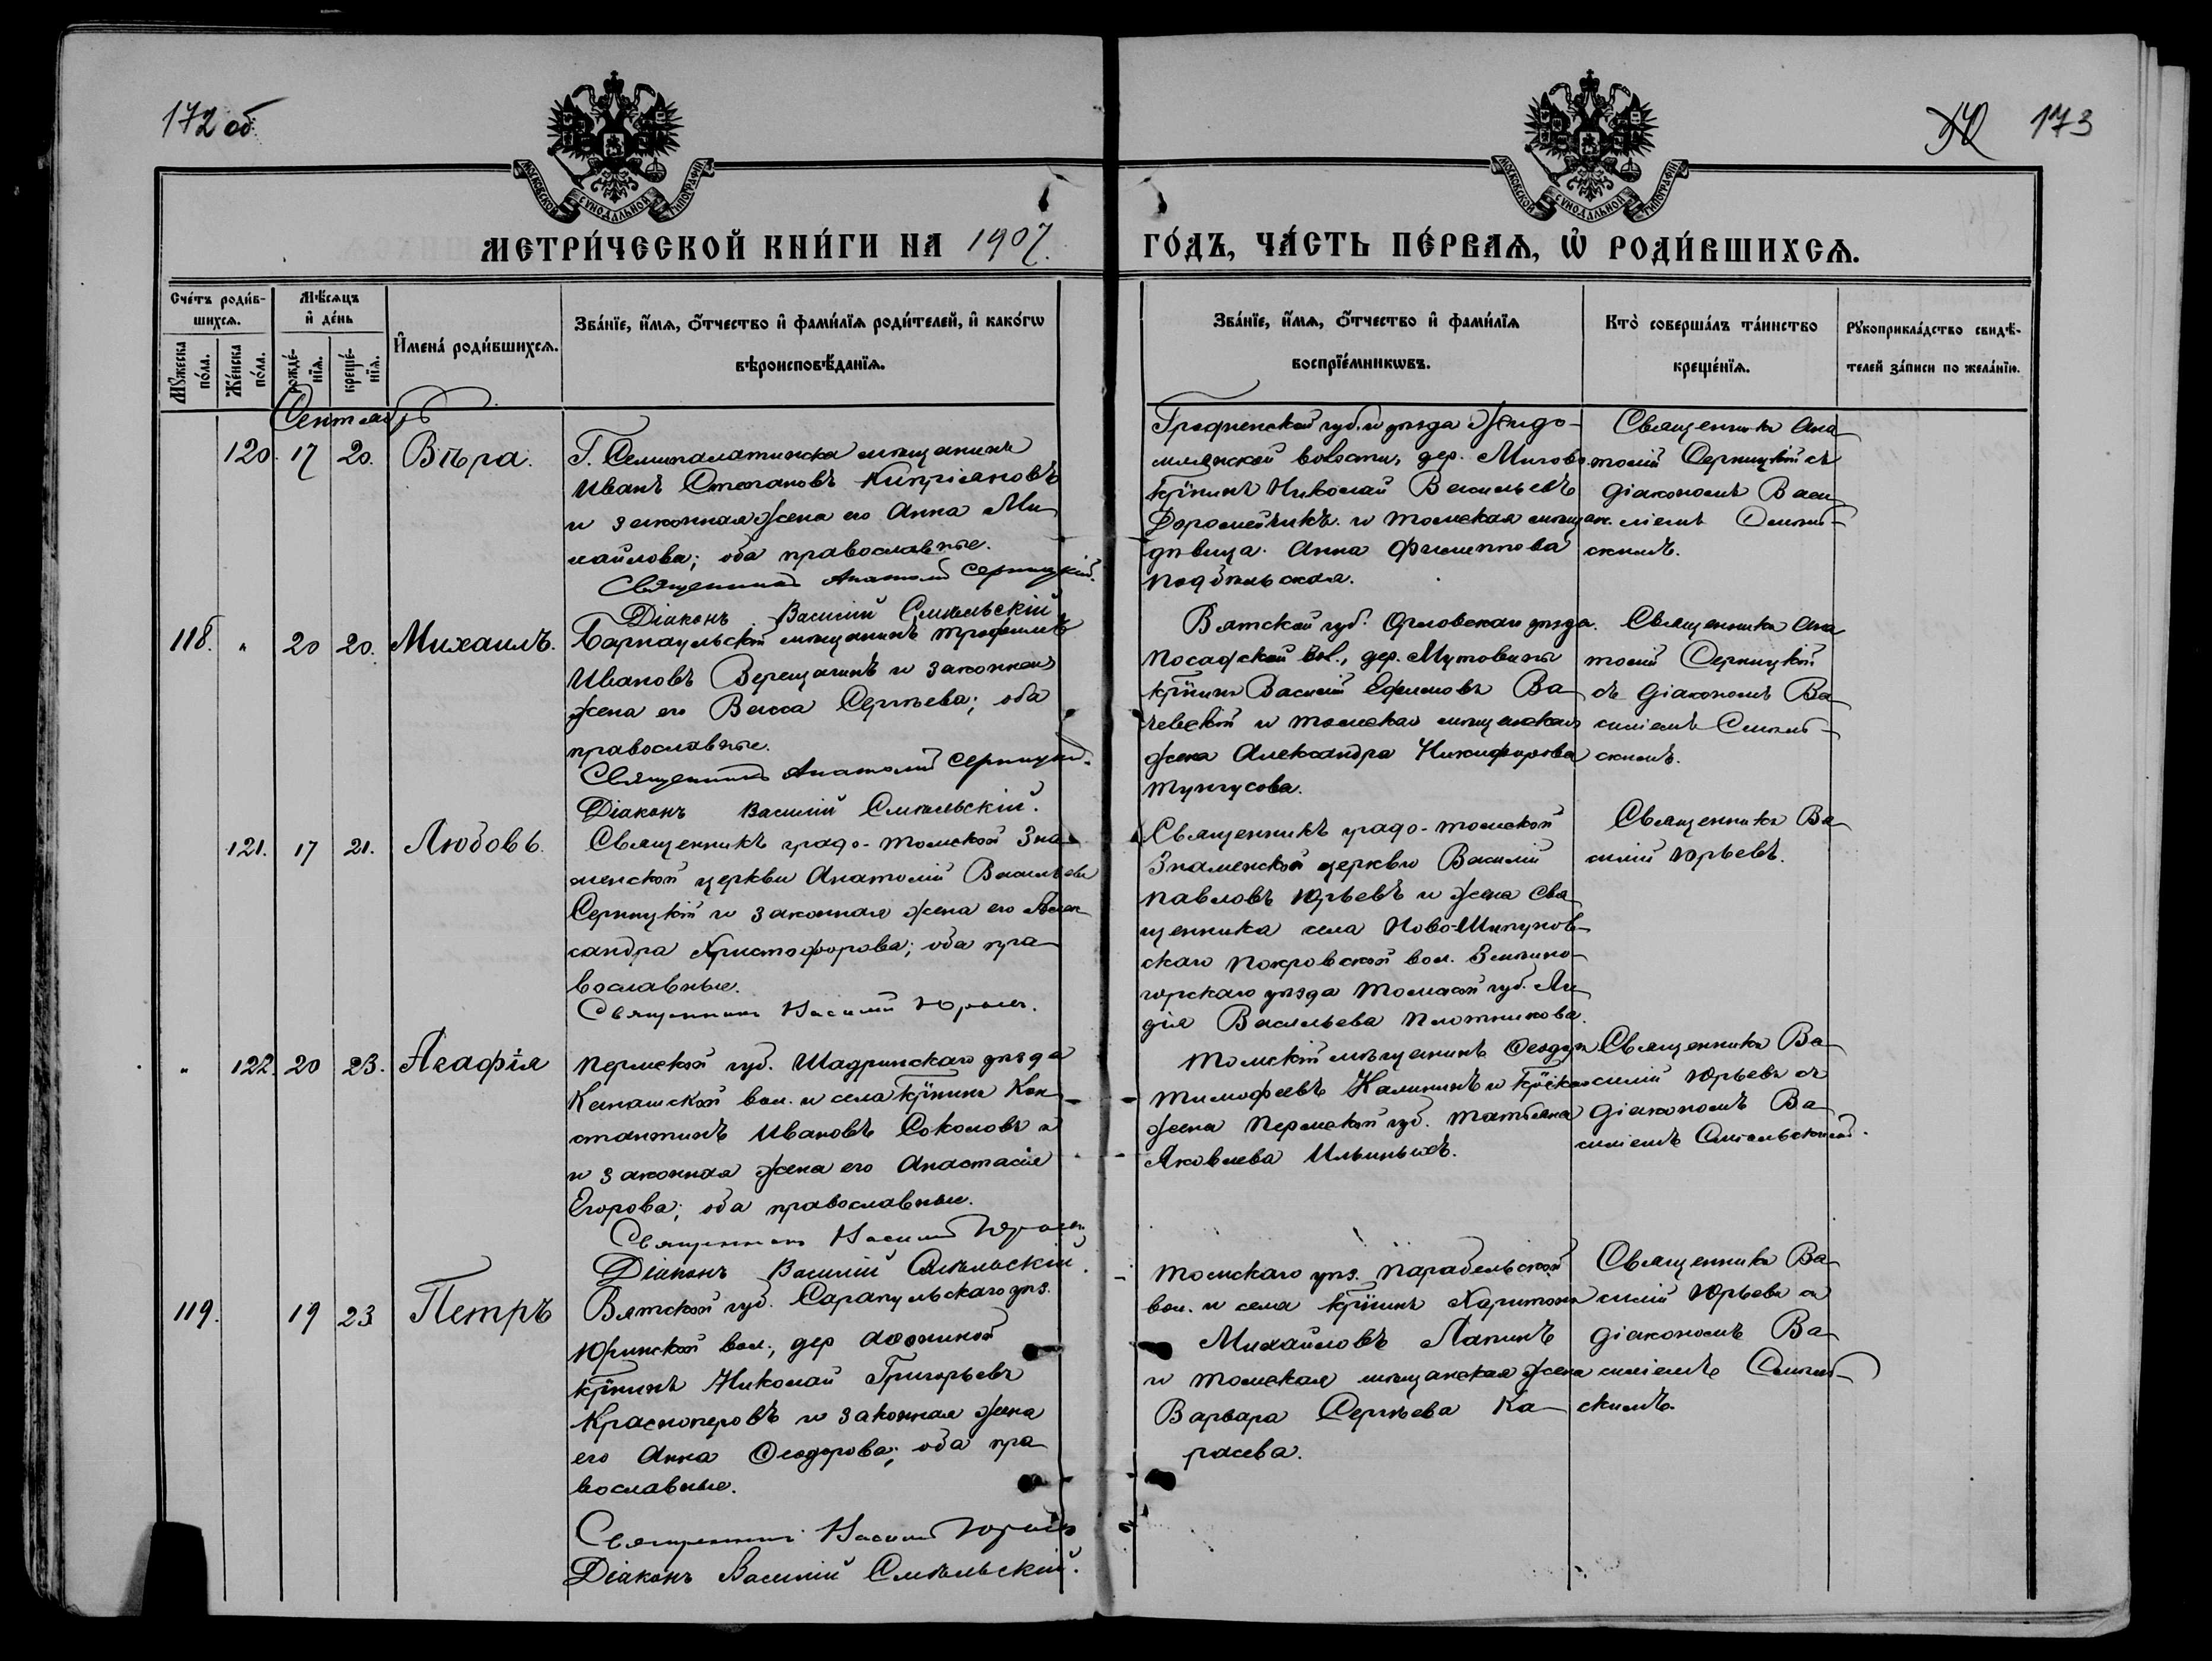 172 об
173
МОСКОВСКОЙ СУНОДАЛЬНОЙ ТИПОГРАФІИ
МОСКОВСКОЙ СУНОДАЛЬНОЙ ТИПОГРАФІИ
МЕТРИ́ЧЕСКОЙ КНИ́ГИ НА 1907.
ГО́ДЪ, ЧА́СТЬ ПЕ́РВАѦ, Ѡ҆ РОДИ́ВШИХСѦ.
Сче́тъ роди́в-
шихсѧ.
Мѣ́сѧцъ
и҆ де́нь
Мꙋ́жеска
по́ла.
Же́нска
по́ла.
рожде́-
нїѧ.
креще́-
нїѧ.
И҆мена̀ роди́вшихсѧ.
Зва́нїе, и҆́мѧ, ѻ҆́тчество и҆ фами́лїѧ роди́телей, и҆ како́гѡ
вѣроисповѣ́данїѧ.
Зва́нїе, и҆́мѧ, ѻ҆́тчество и҆ фами́лїѧ
воспрїе́мникѡвъ.
Кто̀ соверша́лъ та́инство
креще́нїѧ.
Рꙋкоприкла́дство свидѣ́-
телей за́писи по жела́нїю.
Сентябрь
120. 17 20. Вѣра.
Г. Семипалатинска мѣщанинъ
Иванъ Степановъ Кипріяновъ
и законная жена его Анна Ми-
хайлова; оба православные.
Священникъ Анатолій Серницкій.
Діаконъ Василій Смѣльскій
Гродненской губ. и уѣзда
волости, дер.
кр̃нинъ Николай Васильевъ
и томская мѣщан.
дѣвица Анна Филиппова
Подбѣльская.
Священникъ Ана-
толій Серницкій съ
діакономъ Васи-
ліемъ Смѣль-
скимъ.
118. " 20 20. Михаилъ.
Барнаульскій мѣщанинъ Трофимъ
Ивановъ Верещагинъ и законная
жена его Васса Сергѣева; оба
православные.
Священникъ Анатолій Серницкій.
Діаконъ Василій Смѣльскій.
Вятской губ. Орловскаго уѣзда.
Посадской вол., дер. Мутовины
кр̃нинъ Василій Ефимовъ Ва-
чевскій и томская мѣщанская
жена Александра Никифорова
Тунгусова.
Священникъ Ана-
толій Серницкій
съ діакономъ Ва-
силіемъ Смѣль-
скимъ.
121. 17 21. Любовь.
Священникъ градо-томской Зна-
менской церкви Анатолій Васильевъ
Серницкій и законная жена его Алек-
сандра Христофорова; оба пра-
вославные.
Священникъ Василій Юрьевъ.
Священникъ градо-томской
Знаменской церкви Василій
Павловъ Юрьевъ и жена свя-
щенника села Ново-Шипунов-
скаго Покровской вол. Змѣино-
горскаго уѣзда Томской губ. Ли-
дія Васильева Плотникова.
Священникъ Ва-
силій Юрьевъ.
" 122. 20 23. Агафія
Пермской губ. Шадринскаго уѣзда
Канашской вол. и села кр̃нинъ Кон-
стантинъ Ивановъ Соколовъ и
и законная жена его Анастасія
Егорова; оба православные.
Священникъ Василій Юрьевъ
Діаконъ Василій Смѣльскій.
Томскій мѣщанинъ Ѳеодоръ
Тимофеевъ Калининъ и кр̃ская
жена Пермской губ. Татьяна
Яковлева Ильиныхъ.
Священникъ Ва-
силій Юрьевъ съ
діакономъ Ва-
силіемъ Смѣльскимъ.
119. 19 23 Петръ
Вятской губ. Сарапульскаго уѣз.
Юринской вол., дер
кр̃нинъ Николай Григорьевъ
Красноперовъ и законная жена
его Анна Ѳеодорова; оба пра-
вославные.
Священникъ Василій Юрьевъ
Діаконъ Василій Смѣльскій.
Томскаго уѣз. Парабельской
вол. и села кр̃нинъ Харитонъ
Михайловъ Лапинъ
и томская мѣщанская жена
Варвара Сергѣева Ка-
расева.
Священникъ Ва-
силій Юрьевъ съ
діакономъ Ва-
силіемъ Смѣль-
скимъ.